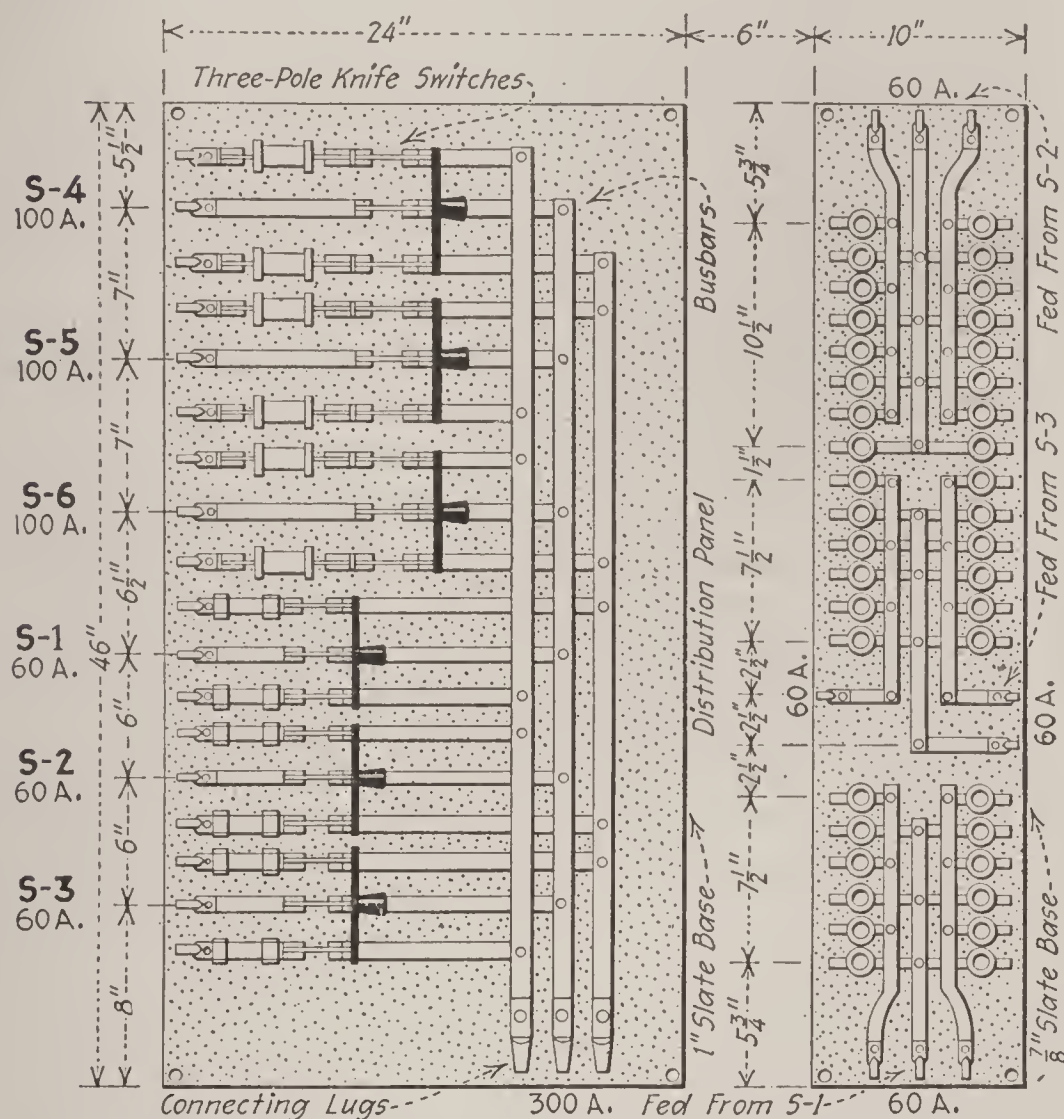 24"
6"
10"
Three-Pole Knife Switches
60 A.
5 1/2"
S-4
100 A.
7"
S-5
100 A.
7"
S-6
100 A.
6 1/2"
46"
S-1
60 A.
6"
S-2
60 A.
6"
S-3
60 A.
8"
Busbars
Distribution Panel
1" Slate Base
5 3/4"
10 1/2"
1 1/2"
7 1/2"
2 1/2"
2 1/2"
2 1/2"
7 1/2"
5 3/4"
60 A.
Fed From S-2
Fed From S-3
60 A.
7/8" Slate Base
Connecting Lugs
300 A.
Fed From S-1
60 A.